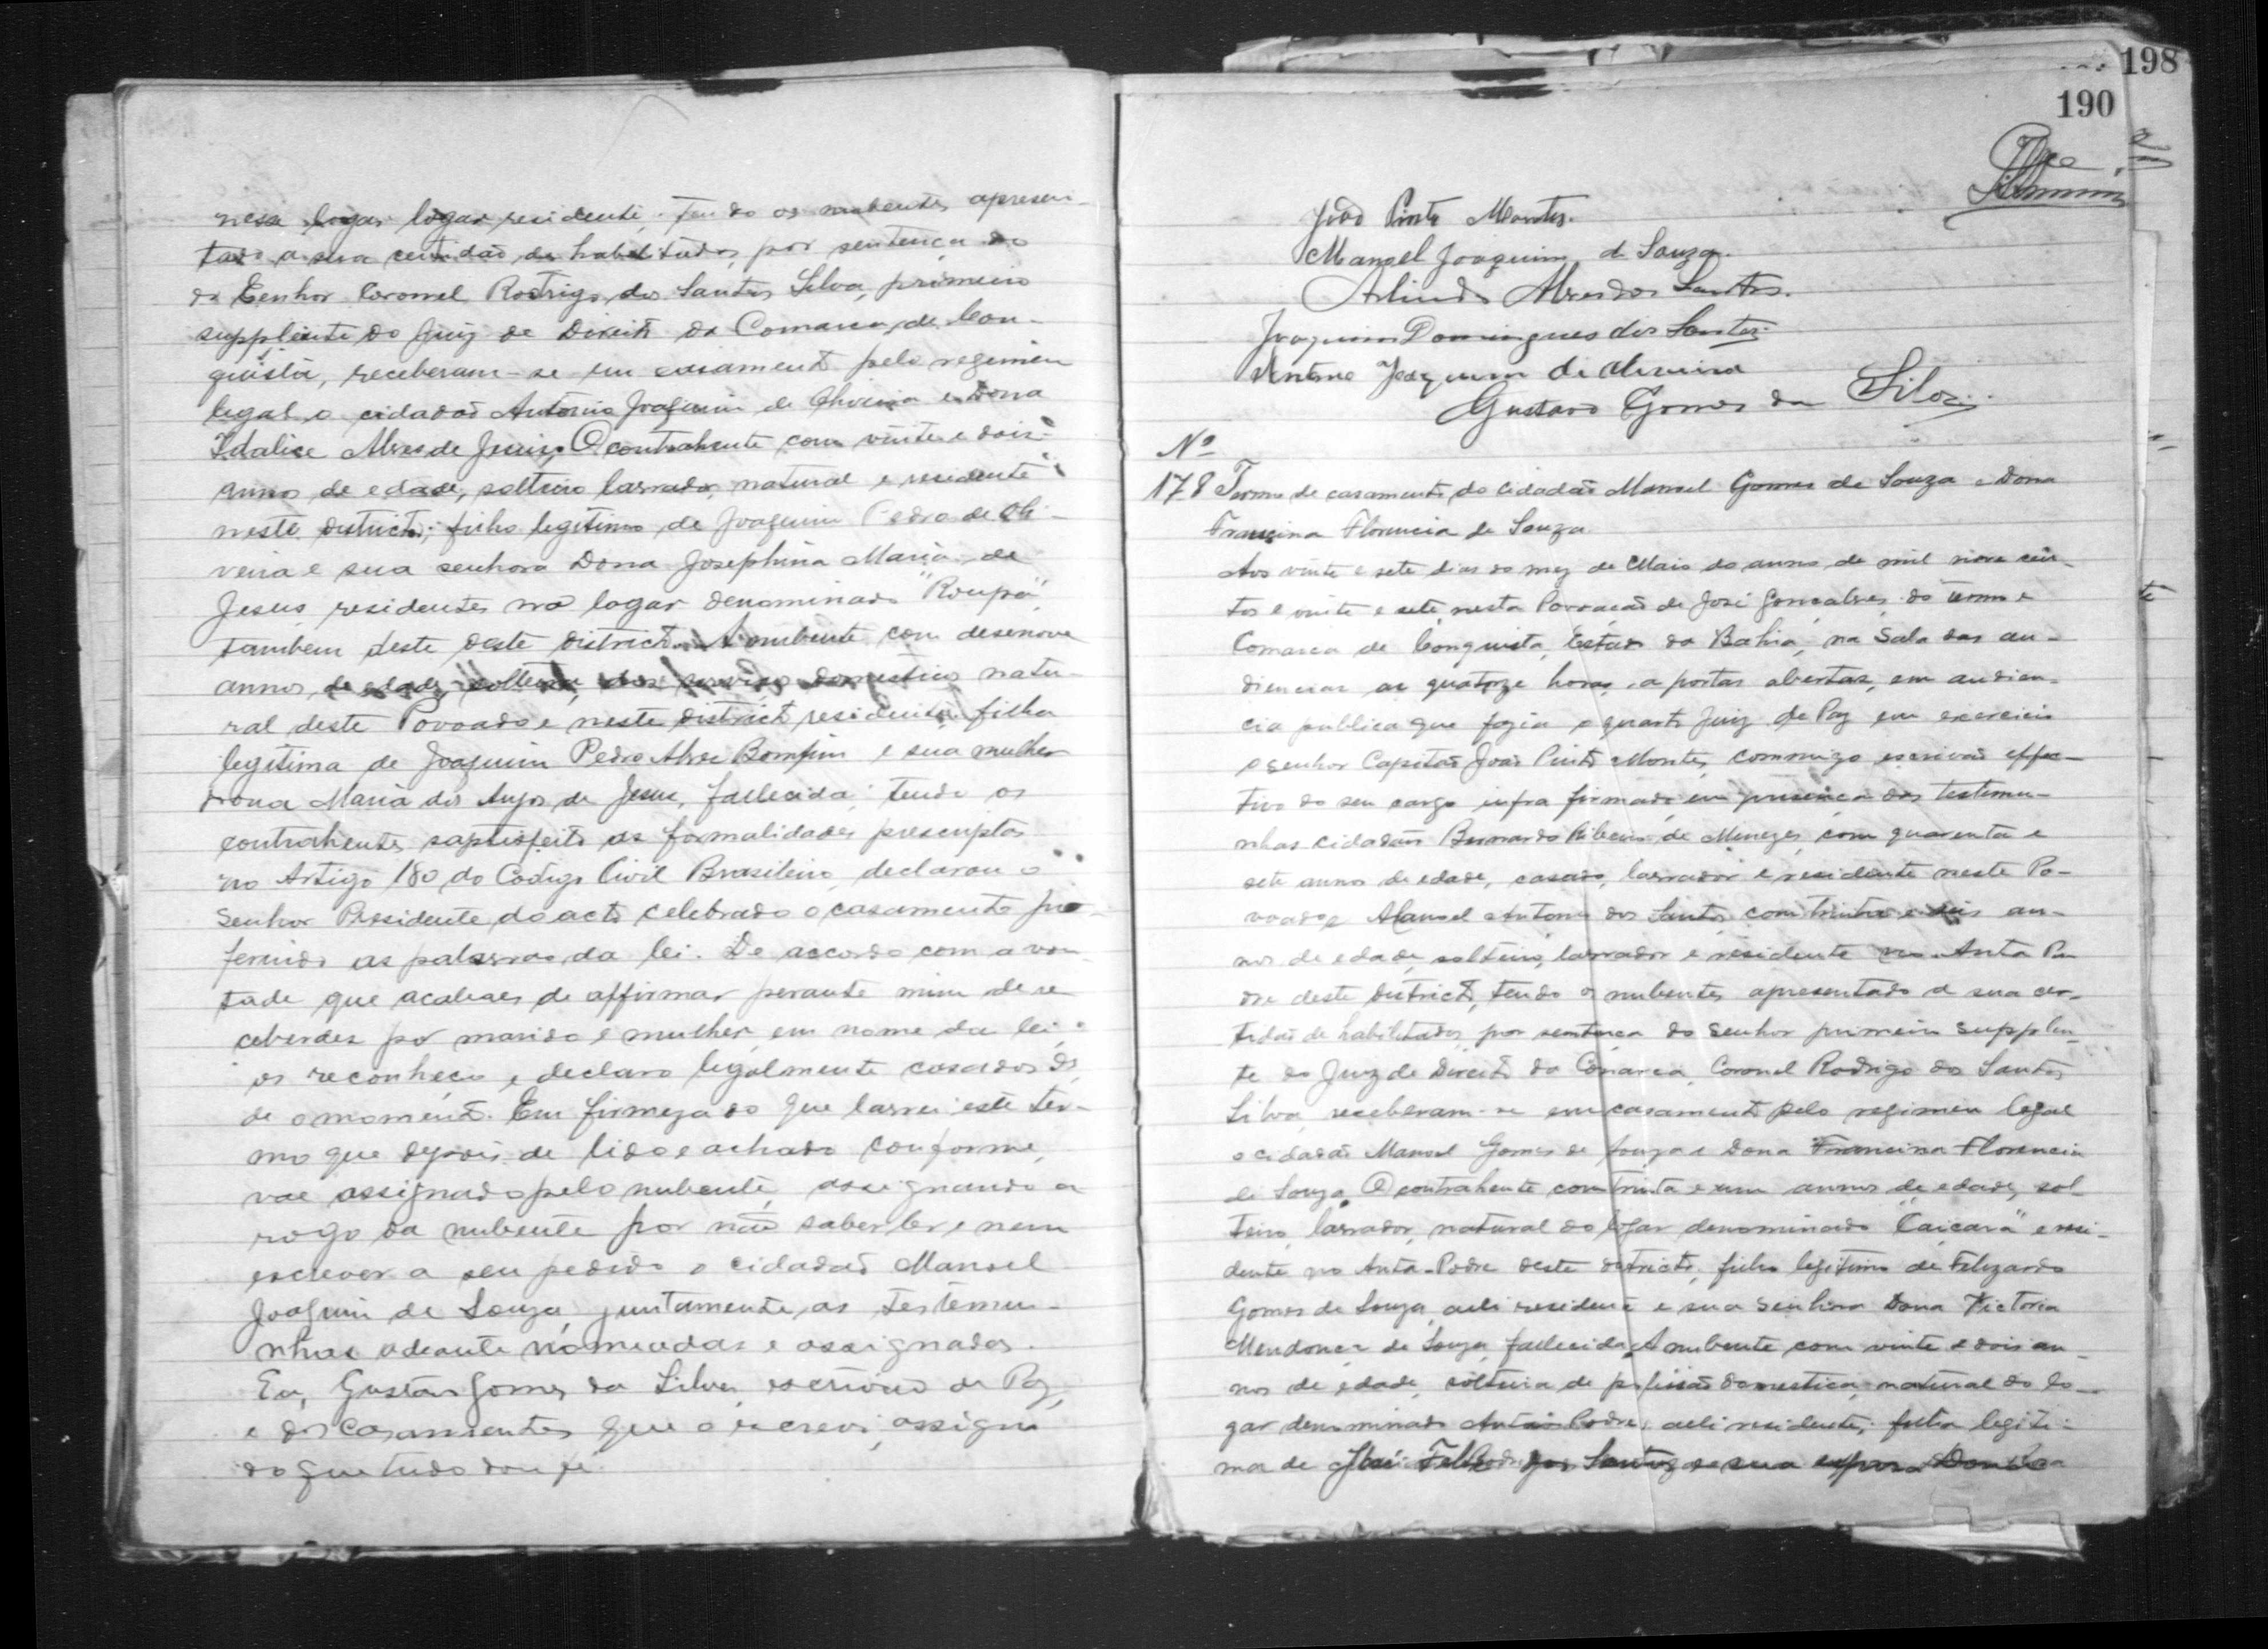 nesa logar logar residente; tendo os nubentes apresen-
tado a sua certidão de habilitados, por sentença do
do Senhor Coronel Rodrigo dos Santos Silva, primeiro
supplente do Juiz de Direito da Comarca de Con-
quista, receberam-se em casamento pelo regimen
legal o cidadão Antonio Joaquim de Oliveira e Dona
Idalice Alves de Jesus. O contrahente com vinte e dois
annos de edade, solteiro lavrador, natural e residente
neste districto; filho legitimo de Joaquim Pedro de Oli-
veira e sua senhora Dona Josephina Maria de
Jesus, residentes no logar denominado "Roupa",
tambem deste deste districto. A nubente com desenove
annos de edade, solteira, dos serviços domesticos natu-
ral deste Povoado e neste districto residente, filha
legitima de Joaquim Pedro Alves Bomfim e sua mulher
Dona Maria dos Anjos de Jesus, fallecida; tendo os
contrahentes saptisfeito as formalidades prescriptas
no Artigo 180 do Codigo Civil Brasileiro, declarou o
Senhor Presidente do acto celebrado o casamento pro-
ferindo as palavras da lei. De accordo com a von-
tade que acabaes de affirmar perante mim de re
ceberdes por marido e mulher, em nome da lei,
os reconheço e declaro legalmente casados des
de o momento. Em firmeza do que lavrei este ter-
mo que depois de lido e achado conforme,
vae assignado pelo nubente, assignando a
rogo da nubente por não saber ler e nem
escrever a seu pedido o cidadão Manoel
Joaquim de Souza, juntamente as testemu-
nhas adeante nomeadas e assignadas.
Eu, Gustavo Gomes da Silva, escrivão de Paz,
e dos Casamentos que o escrevi, assigno
do que tudo dou fé.
198
190
João Pinto Montes.
Manoel Joaquim de Souza.
Arlindo Alves dos Santos.
Joaquim Domingues dos Santos
Antonio Joaquim de Oliveira
Gustavo Gomes da Silva
Nº
178 Termo de casamento do Cidadão Manoel Gomes de Souza e Dona
Francina Florencia de Souza
Aos vinte e sete dias do mez de Maio do anno de mil nove cen-
tos e vinte e sete, nesta Povoação de José Gonçalves, do termo e
Comarca de Conquista, Estado da Bahia, na Sala das au-
diencias as quatorze horas, a portas abertas, em audien-
cia publica que fazia o quarto Juiz de Paz em exercicio
o senhor Capitão João Pinto Montes, commigo escrivão effec-
tivo do seu cargo infra firmado em presença das testemu-
nhas cidadãos Bernardo Ribeiro de Menezes, com quarenta e
sete annos de edade, casado, lavrador e residente neste Po-
voado e Manoel Antonio dos Santos com trinta e seis an-
nos de edade, solteiro, lavrador e residente no Anta Po
dre deste districto, tendo os nubentes apresentado a sua cer-
tidão de habilitados, por sentença do Senhor primeiro Supplen-
te do Juiz de Direito da Comarca, Coronel Rodrigo dos Santos
Silva, receberam-se em casamento pelo regimen legal
o cidadão Manoel Gomes de Souza e Dona Francina Florencia
de Souza. O contrahente com trinta e um annos de edade, sol
teiro, lavrador, natural do logar denominado "Caiçara" e resi-
dente no Anta-Podre deste districto, filho legitimo de Felizardo
Gomes de Souza, ali residente e sua Senhora Dona Victoria
Mendonça de Souza, fallecida. A nubente com vinte e dois an-
nos de edade, solteira de profissão domestica, natural do lo-
gar denominado Anta Podre, ali residente; filha legiti-
ma de José dos Santos e sua esposa Dona